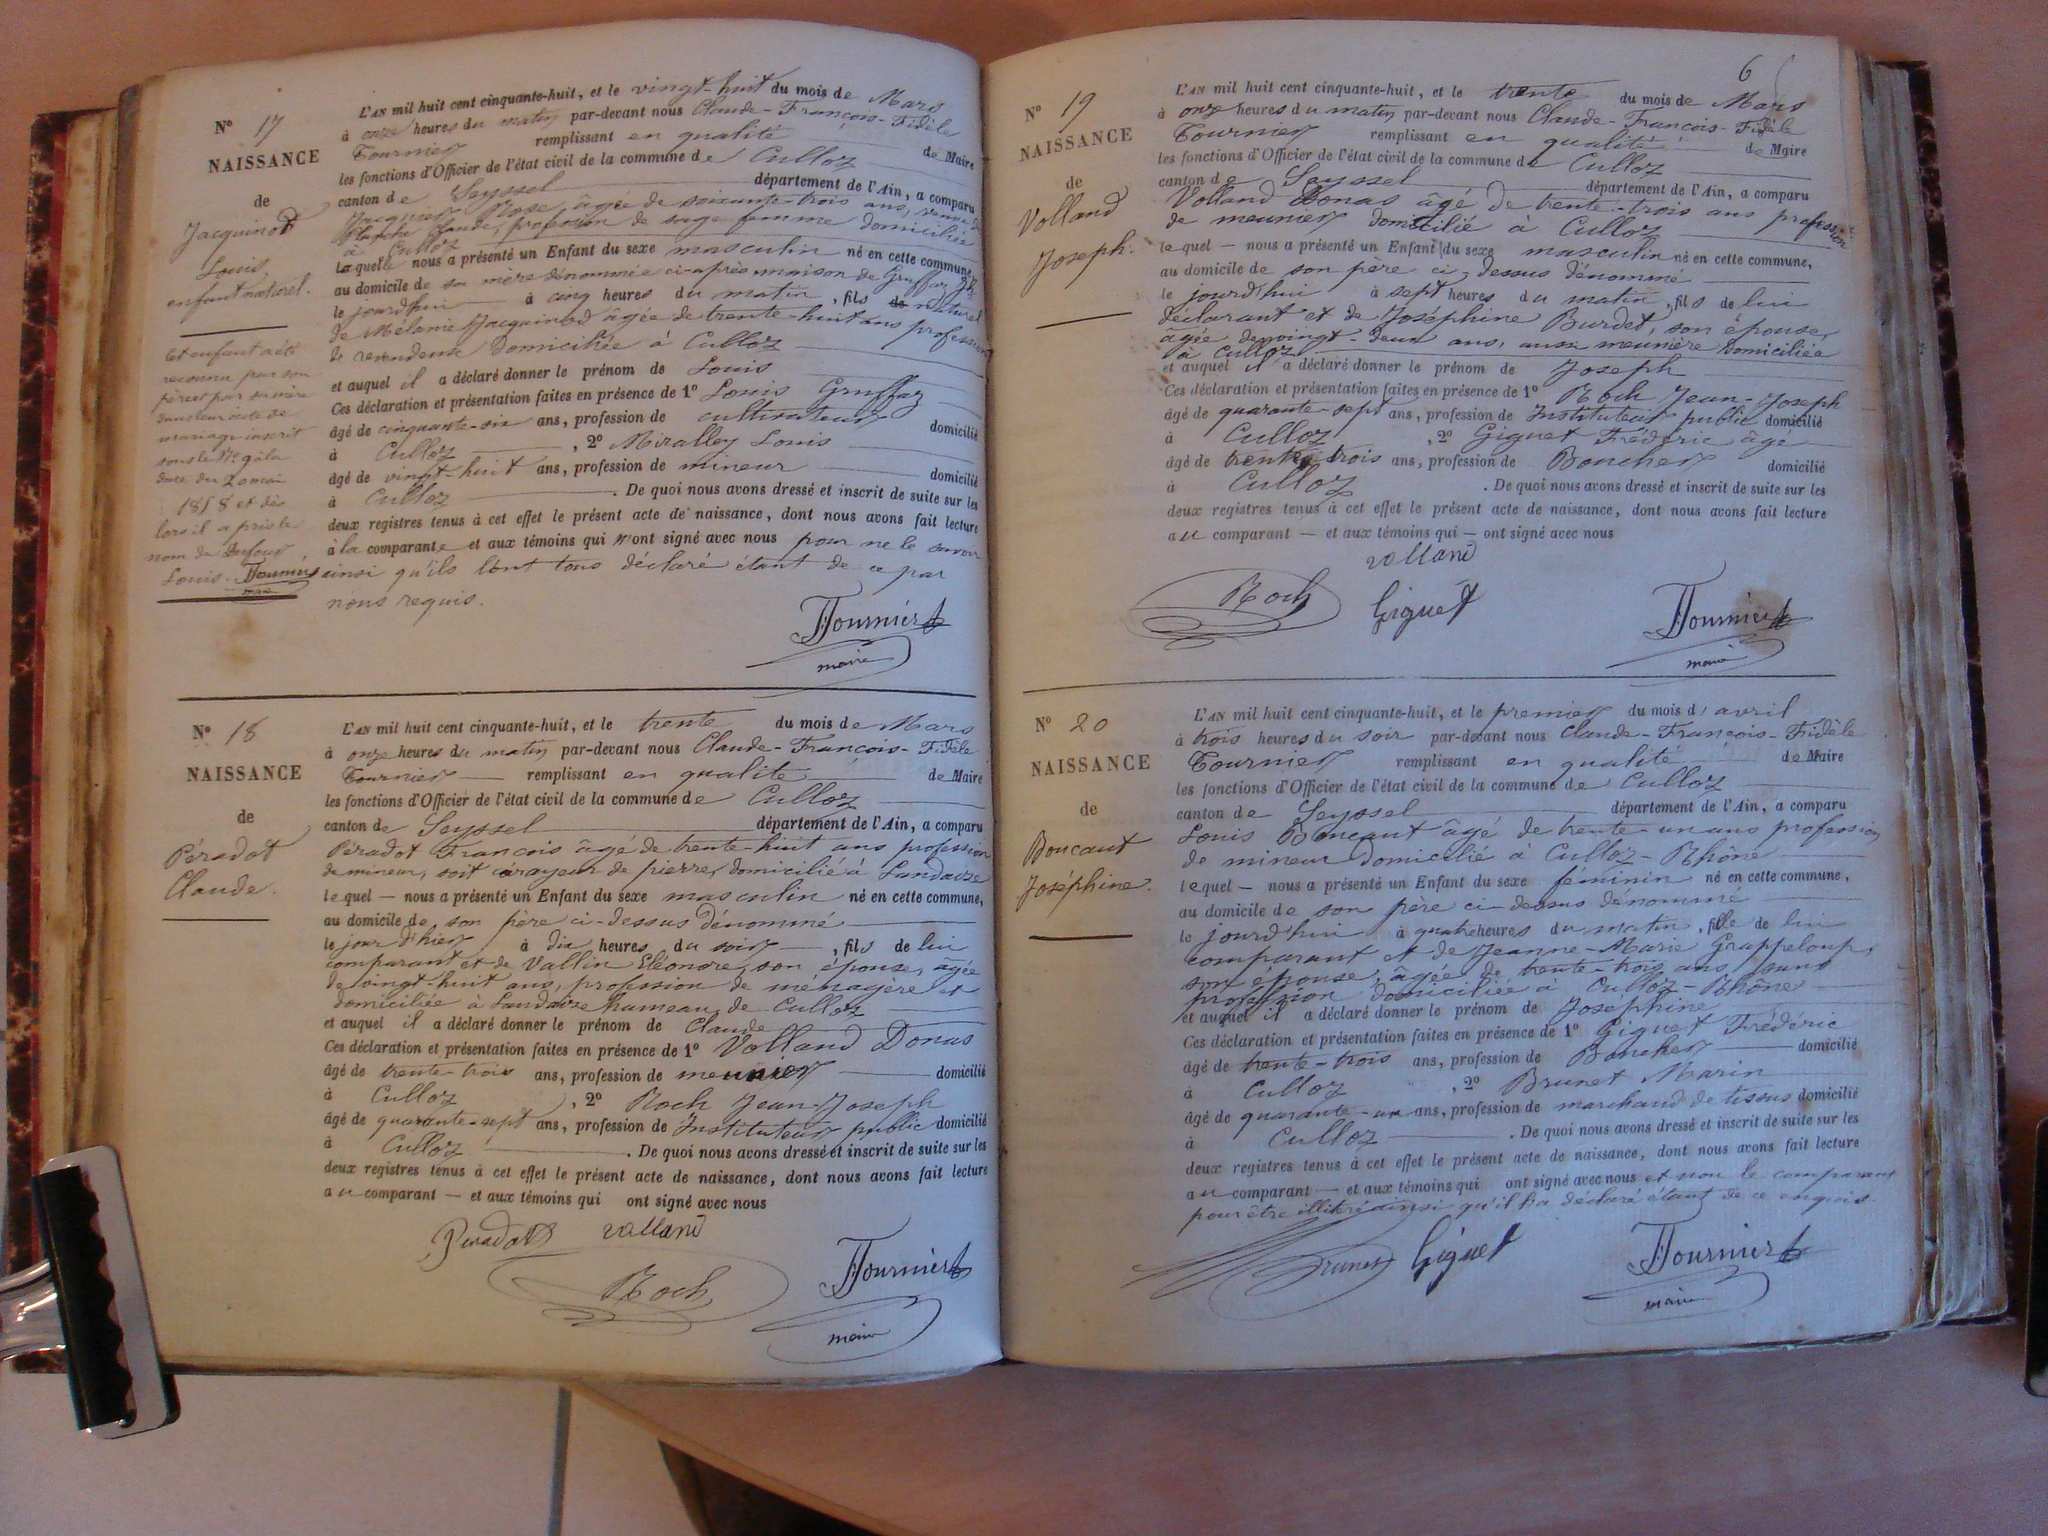 N° 17
NAISSANCE
de
Jacquinod
Louis,
enfant naturel.
Cet enfant a été
reconnu par son
père et par sa mère
dans leur acte de
mariage inscrit
sous le N° 9 à la
date du 2 mai
et dès
lors il a pris le
nom de
Louis. Fournier
maire
L'AN mil huit cent cinquante-huit, et le vingt-huit du mois de Mars
à onze heures du matin par-devant nous Claude-François-Fidèle
Fournier remplissant en qualité de Maire
les fonctions d'Officier de l'état civil de la commune de Culloz
canton de Seyssel département de l'Ain, a comparu
Rose, âgée de soixante-trois ans,
Claude, profession de sage femme domiciliée
à Culloz
laquelle nous a présenté un Enfant du sexe masculin né en cette commune,
au domicile de sa mère dénommée ci-après maison de Gruffaz
le jourd'hui à cinq heures du matin, fils de naturel
de Mélanie Jacquinod âgée de trente-huit ans profession
de revendeuse domiciliée à Culloz
et auquel il a déclaré donner le prénom de Louis
Ces déclaration et présentation faites en présence de 1° Louis Gruffaz
âgé de cinquante-six ans, profession de cultivateur domicilié
à Culloz, 2° Miralley Louis
âgé de vingt-huit ans, profession de mineur domicilié
à Culloz. De quoi nous avons dressé et inscrit de suite sur les
deux registres tenus à cet effet le présent acte de naissance, dont nous avons fait lecture
à la comparante et aux témoins qui n'ont signé avec nous pour ne le savoir
ainsi qu'ils l'ont tous déclaré étant de ce par
nous requis.
Fournier
maire
N° 18
NAISSANCE
de
Péradot
Claude.
L'AN mil huit cent cinquante-huit, et le trente du mois de Mars
à onze heures du matin par-devant nous Claude-François-Fidèle
Fournier remplissant en qualité de Maire
les fonctions d'Officier de l'état civil de la commune de Culloz
canton de Seyssel département de l'Ain, a comparu
Péradot François âgé de trente-huit ans profession
de mineur, soit carayeur de pierre, domicilié à Landaize
lequel — nous a présenté un Enfant du sexe masculin né en cette commune,
au domicile de son père ci-dessus dénommé
le jour d'hier à dix heures du soir, fils de lui
comparant et de Vallin Eléonore, son épouse, âgée
de vingt-huit ans, profession de ménagère et
domiciliée à Landaize hameau de Culloz
et auquel il a déclaré donner le prénom de Claude
Ces déclaration et présentation faites en présence de 1° Volland Donas
âgé de trente-trois ans, profession de meunier domicilié
à Culloz, 2° Roch Jean-Joseph
âgé de quarante-sept ans, profession de Instituteur public domicilié
à Culloz. De quoi nous avons dressé et inscrit de suite sur les
deux registres tenus à cet effet le présent acte de naissance, dont nous avons fait lecture
au comparant — et aux témoins qui ont signé avec nous
Péradot volland
Roch Fournier
maire
6
N° 19
NAISSANCE
de
Volland
Joseph.
L'AN mil huit cent cinquante-huit, et le trente du mois de Mars
à onze heures du matin par-devant nous Claude-François-Fidèle
Fournier remplissant en qualité de Maire
les fonctions d'Officier de l'état civil de la commune de Culloz
canton de Seyssel département de l'Ain, a comparu
Volland Donas âgé de trente-trois ans profession
de meunier domicilié à Culloz
lequel — nous a présenté un Enfant du sexe masculin né en cette commune,
au domicile de son père ci-dessus dénommé
le jourd'hui à sept heures du matin, fils de lui
déclarant et de Joséphine Burdet, son épouse,
âgée de vingt-deux ans, aussi meunière domiciliée
à Culloz
et auquel il a déclaré donner le prénom de Joseph
Ces déclaration et présentation faites en présence de 1° Roch Jean-Joseph
âgé de quarante-sept ans, profession de Instituteur public domicilié
à Culloz, 2° Giguet Frédéric âgé
âgé de trente-trois ans, profession de Boucher domicilié
à Culloz. De quoi nous avons dressé et inscrit de suite sur les
deux registres tenus à cet effet le présent acte de naissance, dont nous avons fait lecture
au comparant — et aux témoins qui — ont signé avec nous
volland
Roch Giguet Fournier
maire
N° 20
NAISSANCE
de
Boucaut
Joséphine.
L'AN mil huit cent cinquante-huit, et le premier du mois d'avril
à trois heures du soir par-devant nous Claude-François-Fidèle
Fournier remplissant en qualité de Maire
les fonctions d'Officier de l'état civil de la commune de Culloz
canton de Seyssel département de l'Ain, a comparu
Louis Boucaut âgé de trente-un ans profession
de mineur domicilié à Culloz-Rhône
lequel — nous a présenté un Enfant du sexe féminin né en cette commune,
au domicile de son père ci-dessus dénommé
le jourd'hui à quatre heures du matin, fille de lui
comparant et de Jeanne-Marie Grappeloup,
son épouse, âgée de trente-trois ans, sans
profession domiciliée à Culloz-Rhône
et auquel il a déclaré donner le prénom de Joséphine
Ces déclaration et présentation faites en présence de 1° Giguet Frédéric
âgé de trente-trois ans, profession de Boucher domicilié
à Culloz, 2° Brunet Marin
âgé de quarante-un ans, profession de marchand de tissus domicilié
à Culloz. De quoi nous avons dressé et inscrit de suite sur les
deux registres tenus à cet effet le présent acte de naissance, dont nous avons fait lecture
au comparant — et aux témoins qui ont signé avec nous et non le comparant
pour être illitéré ainsi qu'il l'a déclaré étant de ce enquis.
Brunet Giguet Fournier
maire